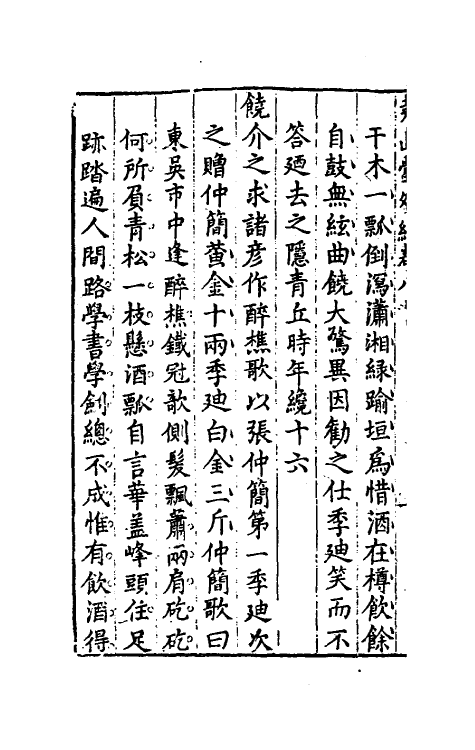 干木一瓢倒瀉瀟湘綠踰垣為惜酒在樽飲餘
自鼓無絃曲饒大驚異因勸之仕季迪笑而不
答廼去之隱青丘時年纔十六
饒介之求諸彦作醉樵歌以張仲簡第一季迪次
之贈仲簡黄金十兩季迪白金三斤仲簡歌曰
東吳市中逢醉樵鐵冠歌側髮飄蕭兩肩矻矻
何所負青松一枝懸酒瓢自言華盖峰頭住足
跡踏遍人間路學書學劍總不成惟有飲酒得